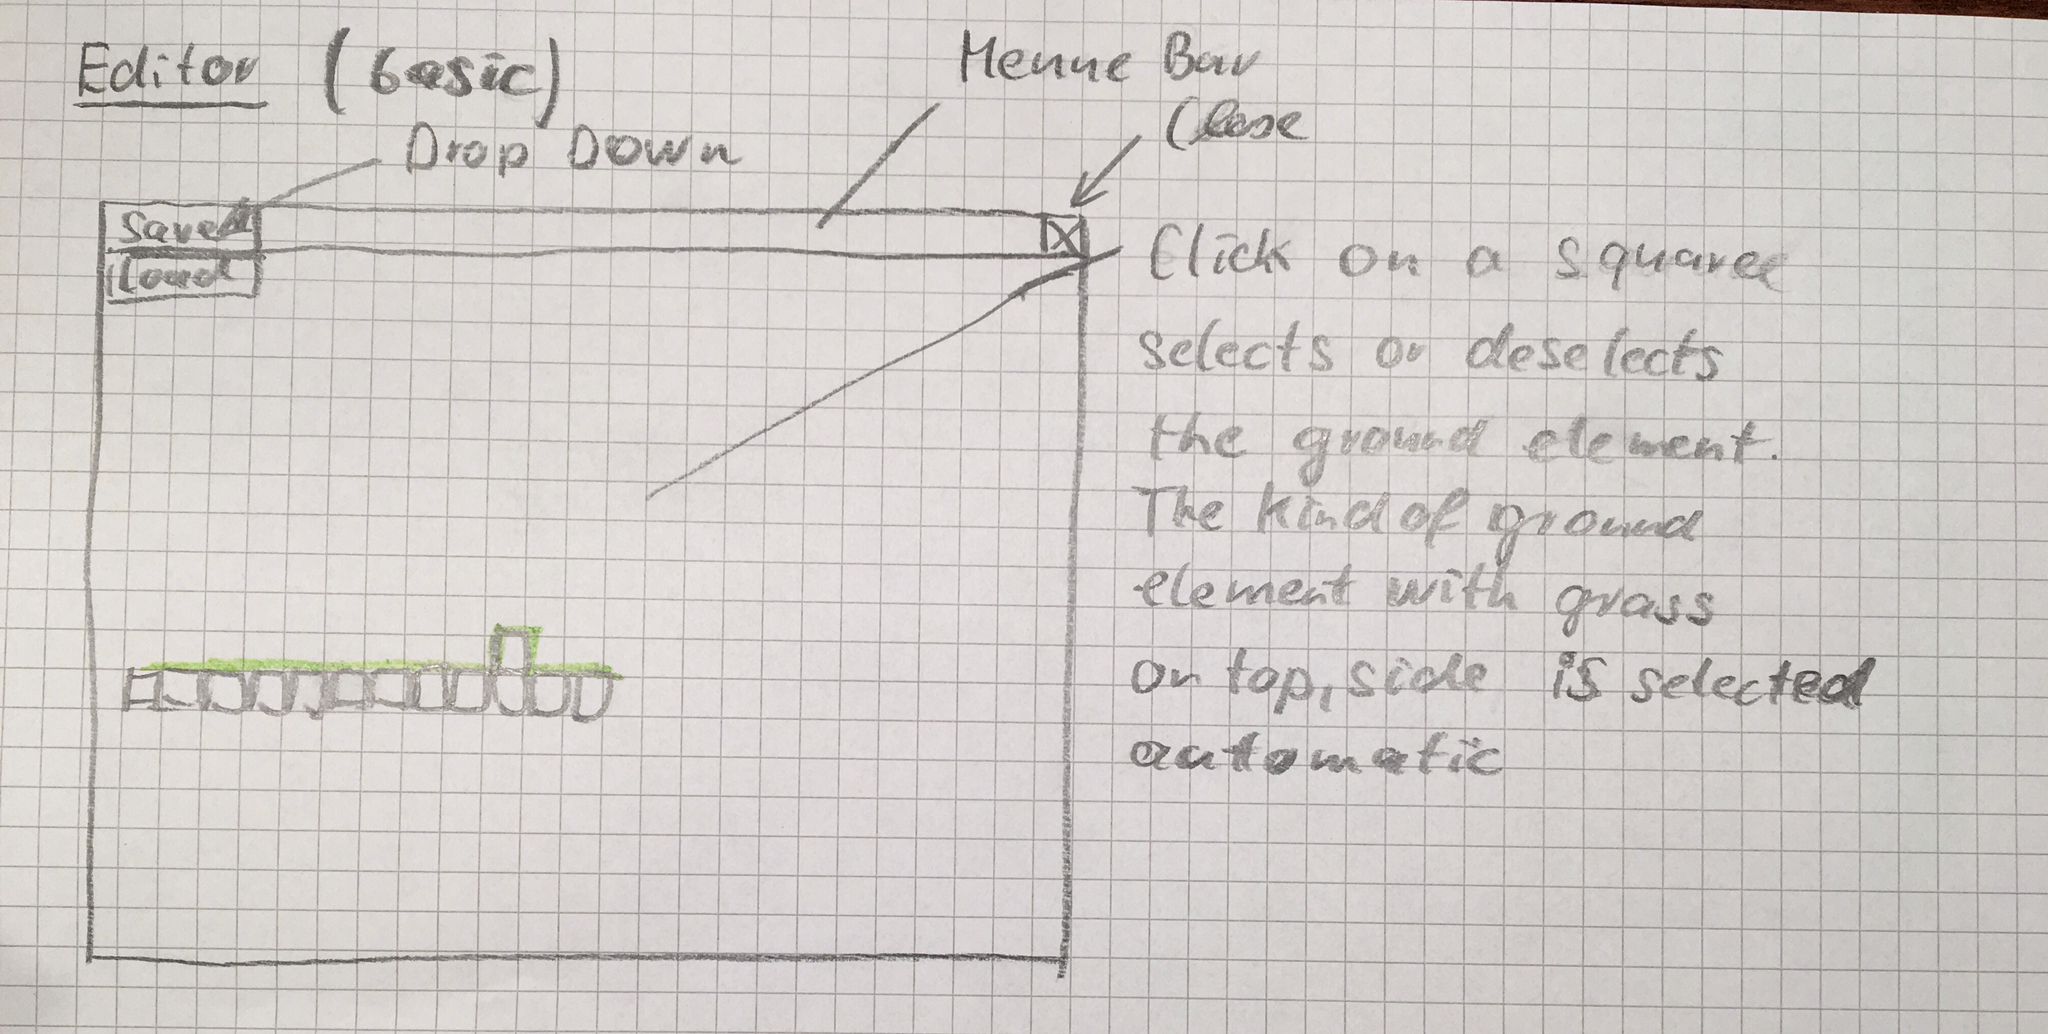 Editor (basic)
Menue Bar
Close
Drop Down
Save
Load
Click on a square
selects or deselects
the ground element.
The kind of ground
element with grass
on top, side is selected
automatic